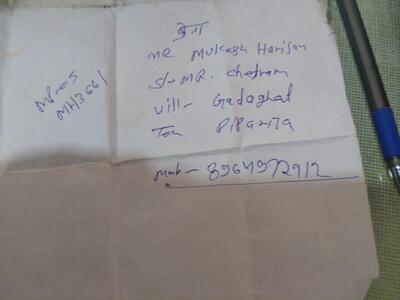 MR Mukesh Harijan
S/o MR. Chetram
Vill- Gadaghat
Teh
Mob- 8964972912
MP05
MH3661